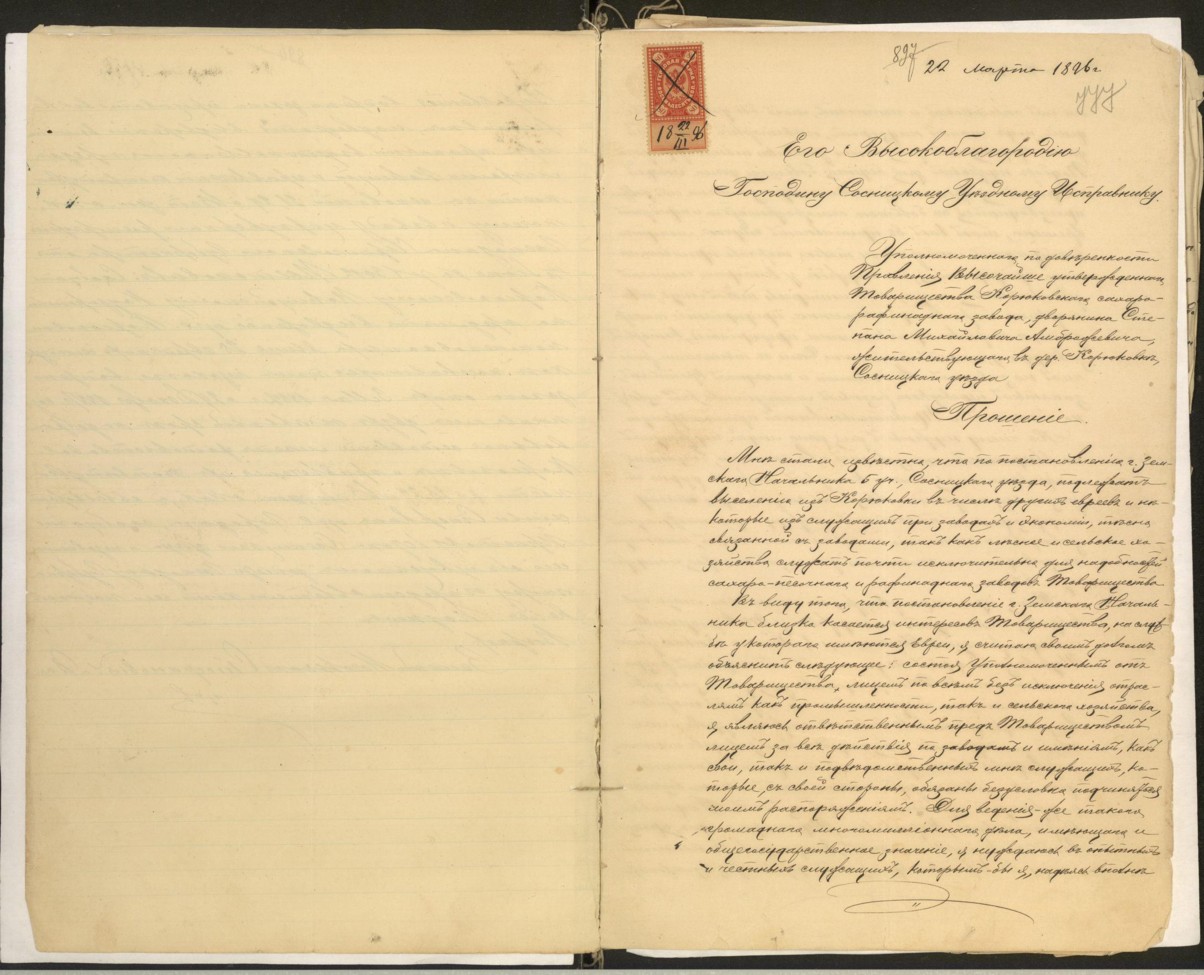 897
22 марта 1896 г
18 22/III 96
Его Высокоблагородію
Господину Сосницкому Уѣздному Исправнику.
Уполномоченнаго по довѣренности
Правленія ВЫСОЧАЙШЕ утвержденнаго
Товарищества Корюковскаго сахаро-
рафинаднаго завода, дворянина Сте-
пана Михайловича Амброжевича,
жительствующаго въ дер. Корюковкѣ,
Сосницкаго уѣзда
Прошеніе.
Мнѣ стало извѣстно, что по постановленію г. Зем-
скаго Начальника 5 уч., Сосницкаго уѣзда, подлежатъ
выселенію изъ Корюковки въ числѣ другихъ евреевъ и нѣ-
которые изъ служащихъ при заводахъ и экономіи, тѣсно
связанной съ заводами, такъ какъ лѣсное и сельское хо-
зяйства служатъ почти исключительно для надобностей
сахаро-песочнаго и рафинаднаго заводовъ Товарищества
Въ виду того, что постановленіе г. Земскаго Началь-
ника близко касается интересовъ Товарищества, на служ-
бѣ у котораго имѣются Евреи, я считаю своимъ долгомъ
объяснить слѣдующее: состоя Уполномоченнымъ отъ
Товарищества, лицемъ по всѣмъ безъ исключенія отрас-
лямъ какъ промышленности, такъ и сельскаго хозяйства,
я, являюсь отвѣтственнымъ предъ Товариществомъ
лицемъ за всѣ дѣйствія по заводамъ и имѣніямъ, какъ
свои, такъ и подвѣдомственныхъ мнѣ служащихъ, ко-
торые, съ своей стороны, обязаны безусловно подчиняться
моимъ распоряженіямъ. Для веденія-же такого
громаднаго многомилліоннаго дѣла, имѣющаго и
общегосударственное значеніе, я нуждаюсь въ опытныхъ
и честныхъ служащихъ, которымъ-бы я, надѣясь вполнѣ